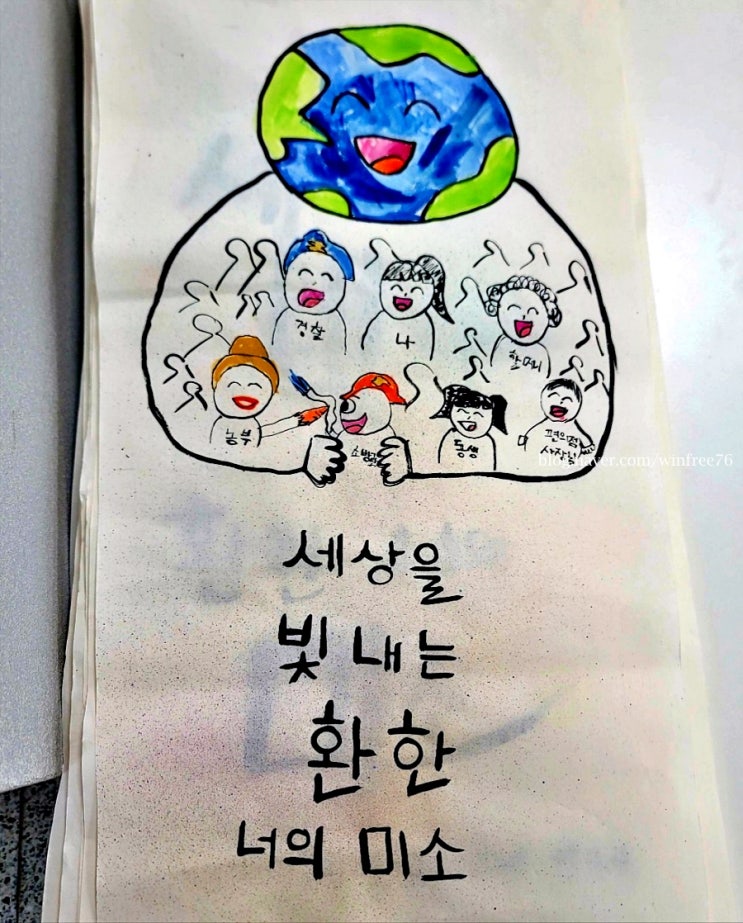 경찰
나
할머니
농부
소방관
동생
편의점
사장님
blog.naver.com/winfree76
세상을
빛내는
환한
너의 미소